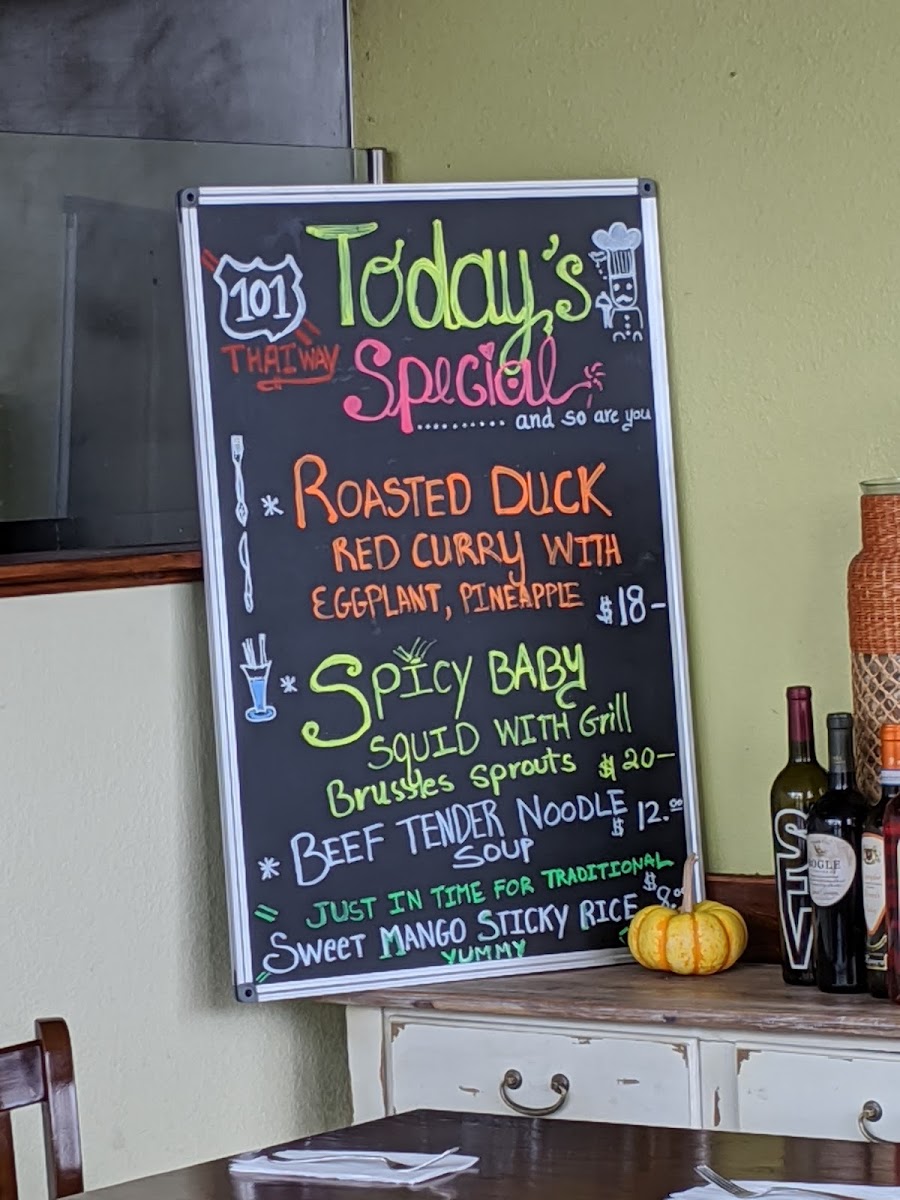 101
THAI WAY
Today's
Special
.......... and so are you
* ROASTED DUCK
RED CURRY WITH
EGGPLANT, PINEAPPLE $18-
* SPICY BABY
SQUID WITH Grill
Brussles sprouts $20-
* BEEF TENDER NOODLE $12.00
SOUP
JUST IN TIME FOR TRADITIONAL
SWEET MANGO STICKY RICE $8.
YUMMY
OGLE